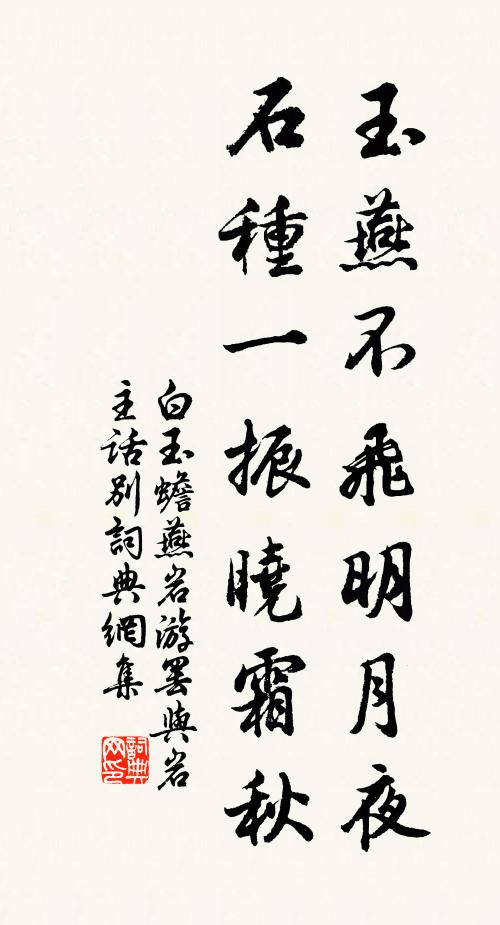 玉燕不飛明月夜
石種一振曉霜秋
白玉蟾燕岩游罢與岩
主話別詞典網集
詞典
网印